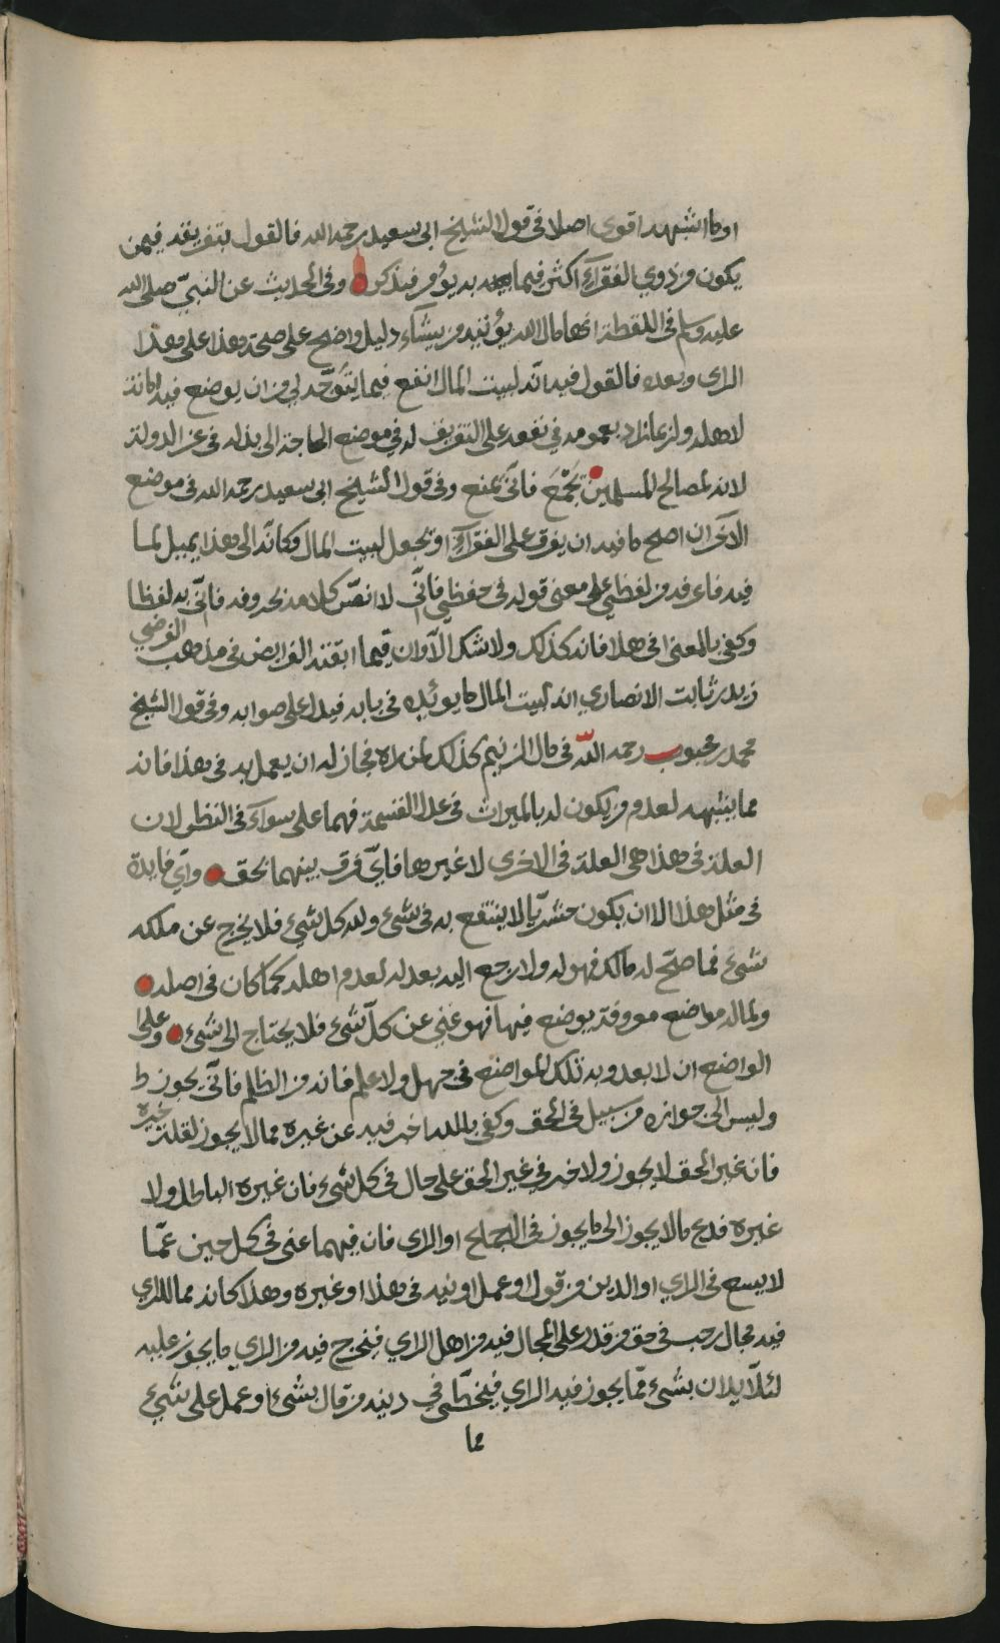 او ما اشبهه اقوى اصلا في قول الشيخ ابي سعيد رحمه الله فالقول بتفريقه فيمن
يكون من ذوي الفقراء اكثر فيما به يؤمر فيذكر وفي الحديث عن النبيّ صلى الله
عليه وسلم في اللقطة انها مال الله يؤتيه من يشاء دليل واضح على صحة هذا على هذا
الراى وبعده فالقول فيه انّه لبيت المال انفع فيما يتوجّه لي من ان يوضع فيه امانة
لاهله ولن في نفعه على التفريق له في موضع الحاجة الى بذله في عز الدولة
لانه لمصالح المسلمين تجمع فانّى تمنع وفي قول الشيخ ابي سعيد رحمه الله في موضع
الآخر ان اصح ما فيه ان يفرق على الفقراء او يجعل لبيت المال وكانّه الى هذا يميل لما
فيه فاعرفه من لفظي على معنى قوله في حفظي فانّي لا انصّ كلامه بحروفه فانّي به لفظا
وكفى بالمعنى في هذا فانه كذلك ولا شك الآوان فيما ابقته الفرايض في مذهب الفرضي
زيد بن ثابت الانصاري انه لبيت المال ما يؤيده في بابه فيدل على صوابه وفي قول الشيخ
محمد بن محبوب رحمه الله في مال الزنيم كذلك لمن راه فجاز له ان يعمل به في هذا فانه
مما يشبهه لعدم من يكون له بالميراث في عدل القسمة فهما على سواء في النظر لان
العلة في هذا هي العلة في الاخرى لا غيرها فايّ فرق بينهما بحق وايّ فايدة
في مثل هذا الا ان يكون حشريّا لا ينتفع به في شيء ولله كل شيء فلا يخرج عن ملكه
شيء فما صحّ له مالك فهو له ولا رجع اليه بعدله لعدم اهله كما كان في اصله
ولماله مواضع معروفة يوضع فيها فهو غني عن كل شيء فلا يحتاج الى شيء وعلى
الواضع ان لا يعدو به تلك المواضع في جهل ولا علم فانه من الظلم فانّى يجوز
وليس الى جوازه من سبيل في الحق وكفى بالله فيه عن غيره مما لا يجوز لقلة خيره
فان غير الحق لا يجوز ولا خير في غير الحق على حال في كل شيء فان غيره الباطل ولا
غيره فدع ما لا يجوز الى ما يجوز في او الراى فان فيهما غنى في كل حين عمّا
لا يسع في الراي او الدين من قول او عمل او نيه في هذا او غيره وهذا كانه مما للراي
فيه مجال رحب في حق من قدر على المجال فيه من اهل الراي فيخرج فيه من الراي ما يجوز عليه
لئلّا يدان بشيء ممّا يجوز فيه الراي فيخطّى في دينه من قال بشيء او عمل على شيء
مما